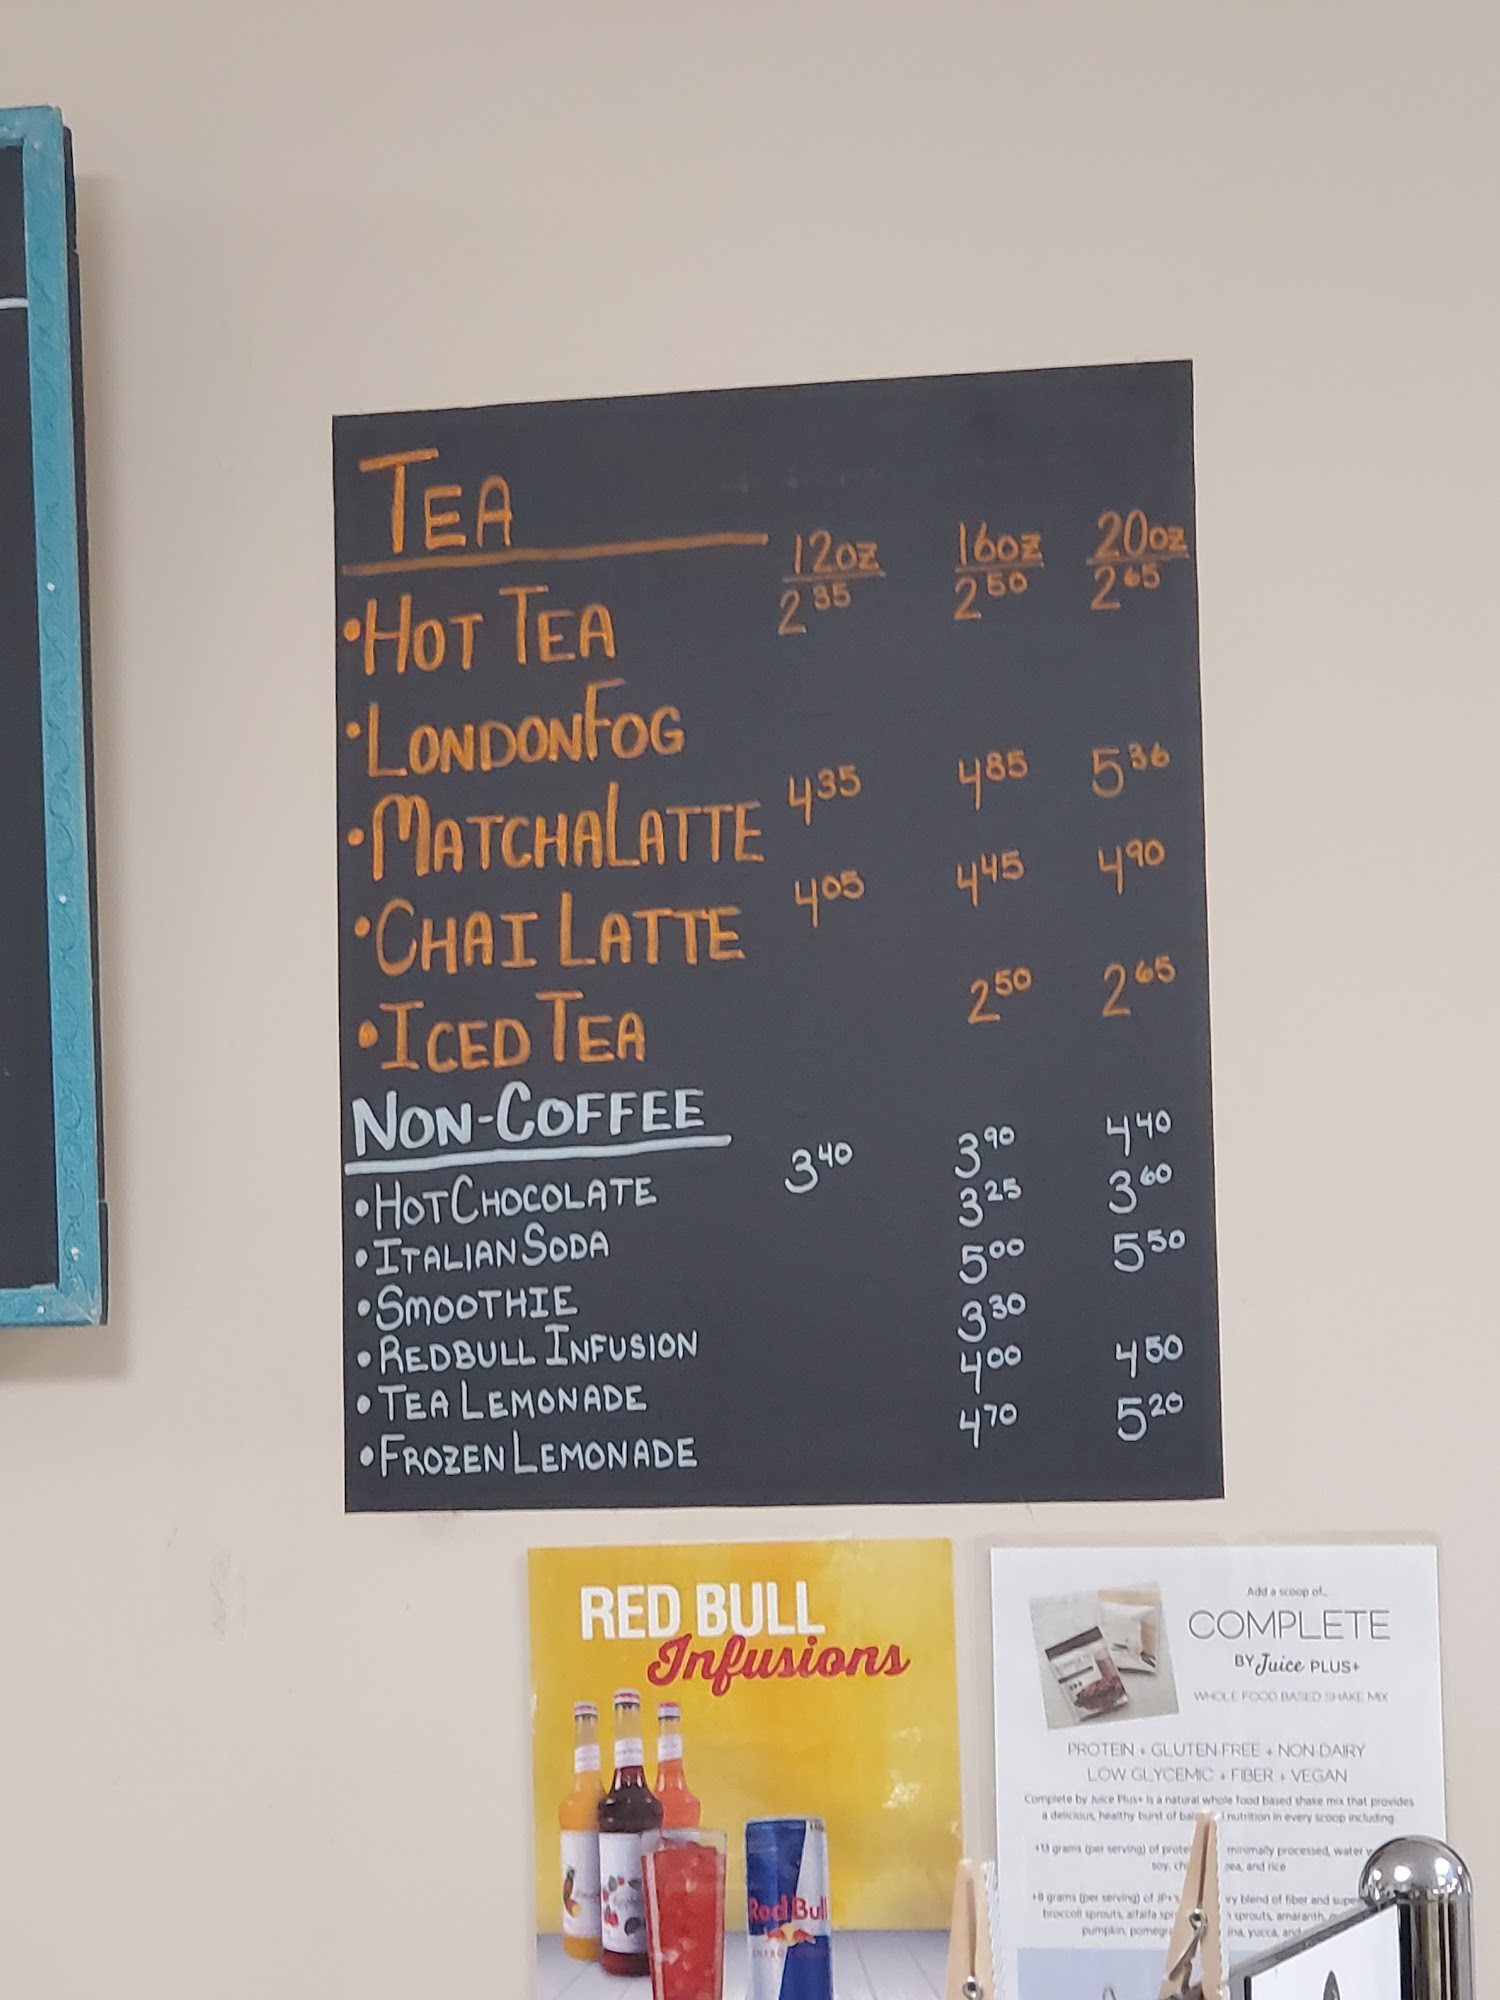 TEA
12oz 16oz 20oz
•HOT TEA 2.35 2.50 2.65
•LONDON FOG
•MATCHA LATTE 4.35 4.85 5.36
•CHAI LATTE 4.05 4.45 4.90
•ICED TEA 2.50 2.65
NON-COFFEE
•HOT CHOCOLATE 3.40 3.90 4.40
•ITALIAN SODA 3.25 3.60
•SMOOTHIE 5.00 5.50
•REDBULL INFUSION 3.30
•TEA LEMONADE 4.00 4.50
•FROZEN LEMONADE 4.70 5.20
RED BULL
Infusions
Red Bull
Add a scoop of...
COMPLETE
BY Juice PLUS+
WHOLE FOOD BASED SHAKE MIX
PROTEIN + GLUTEN-FREE + NON DAIRY
LOW GLYCEMIC + FIBER + VEGAN
Complete by Juice Plus+ is a natural whole food based shake mix that provides
a delicious, healthy burst of nutrition in every scoop including:
+13 grams (per serving) of minimally processed, water
soy, and rice
+8 grams (per serving) of blend of fiber and
broccoli sprouts, alfalfa sprouts, amaranth,
pumpkin, yucca,